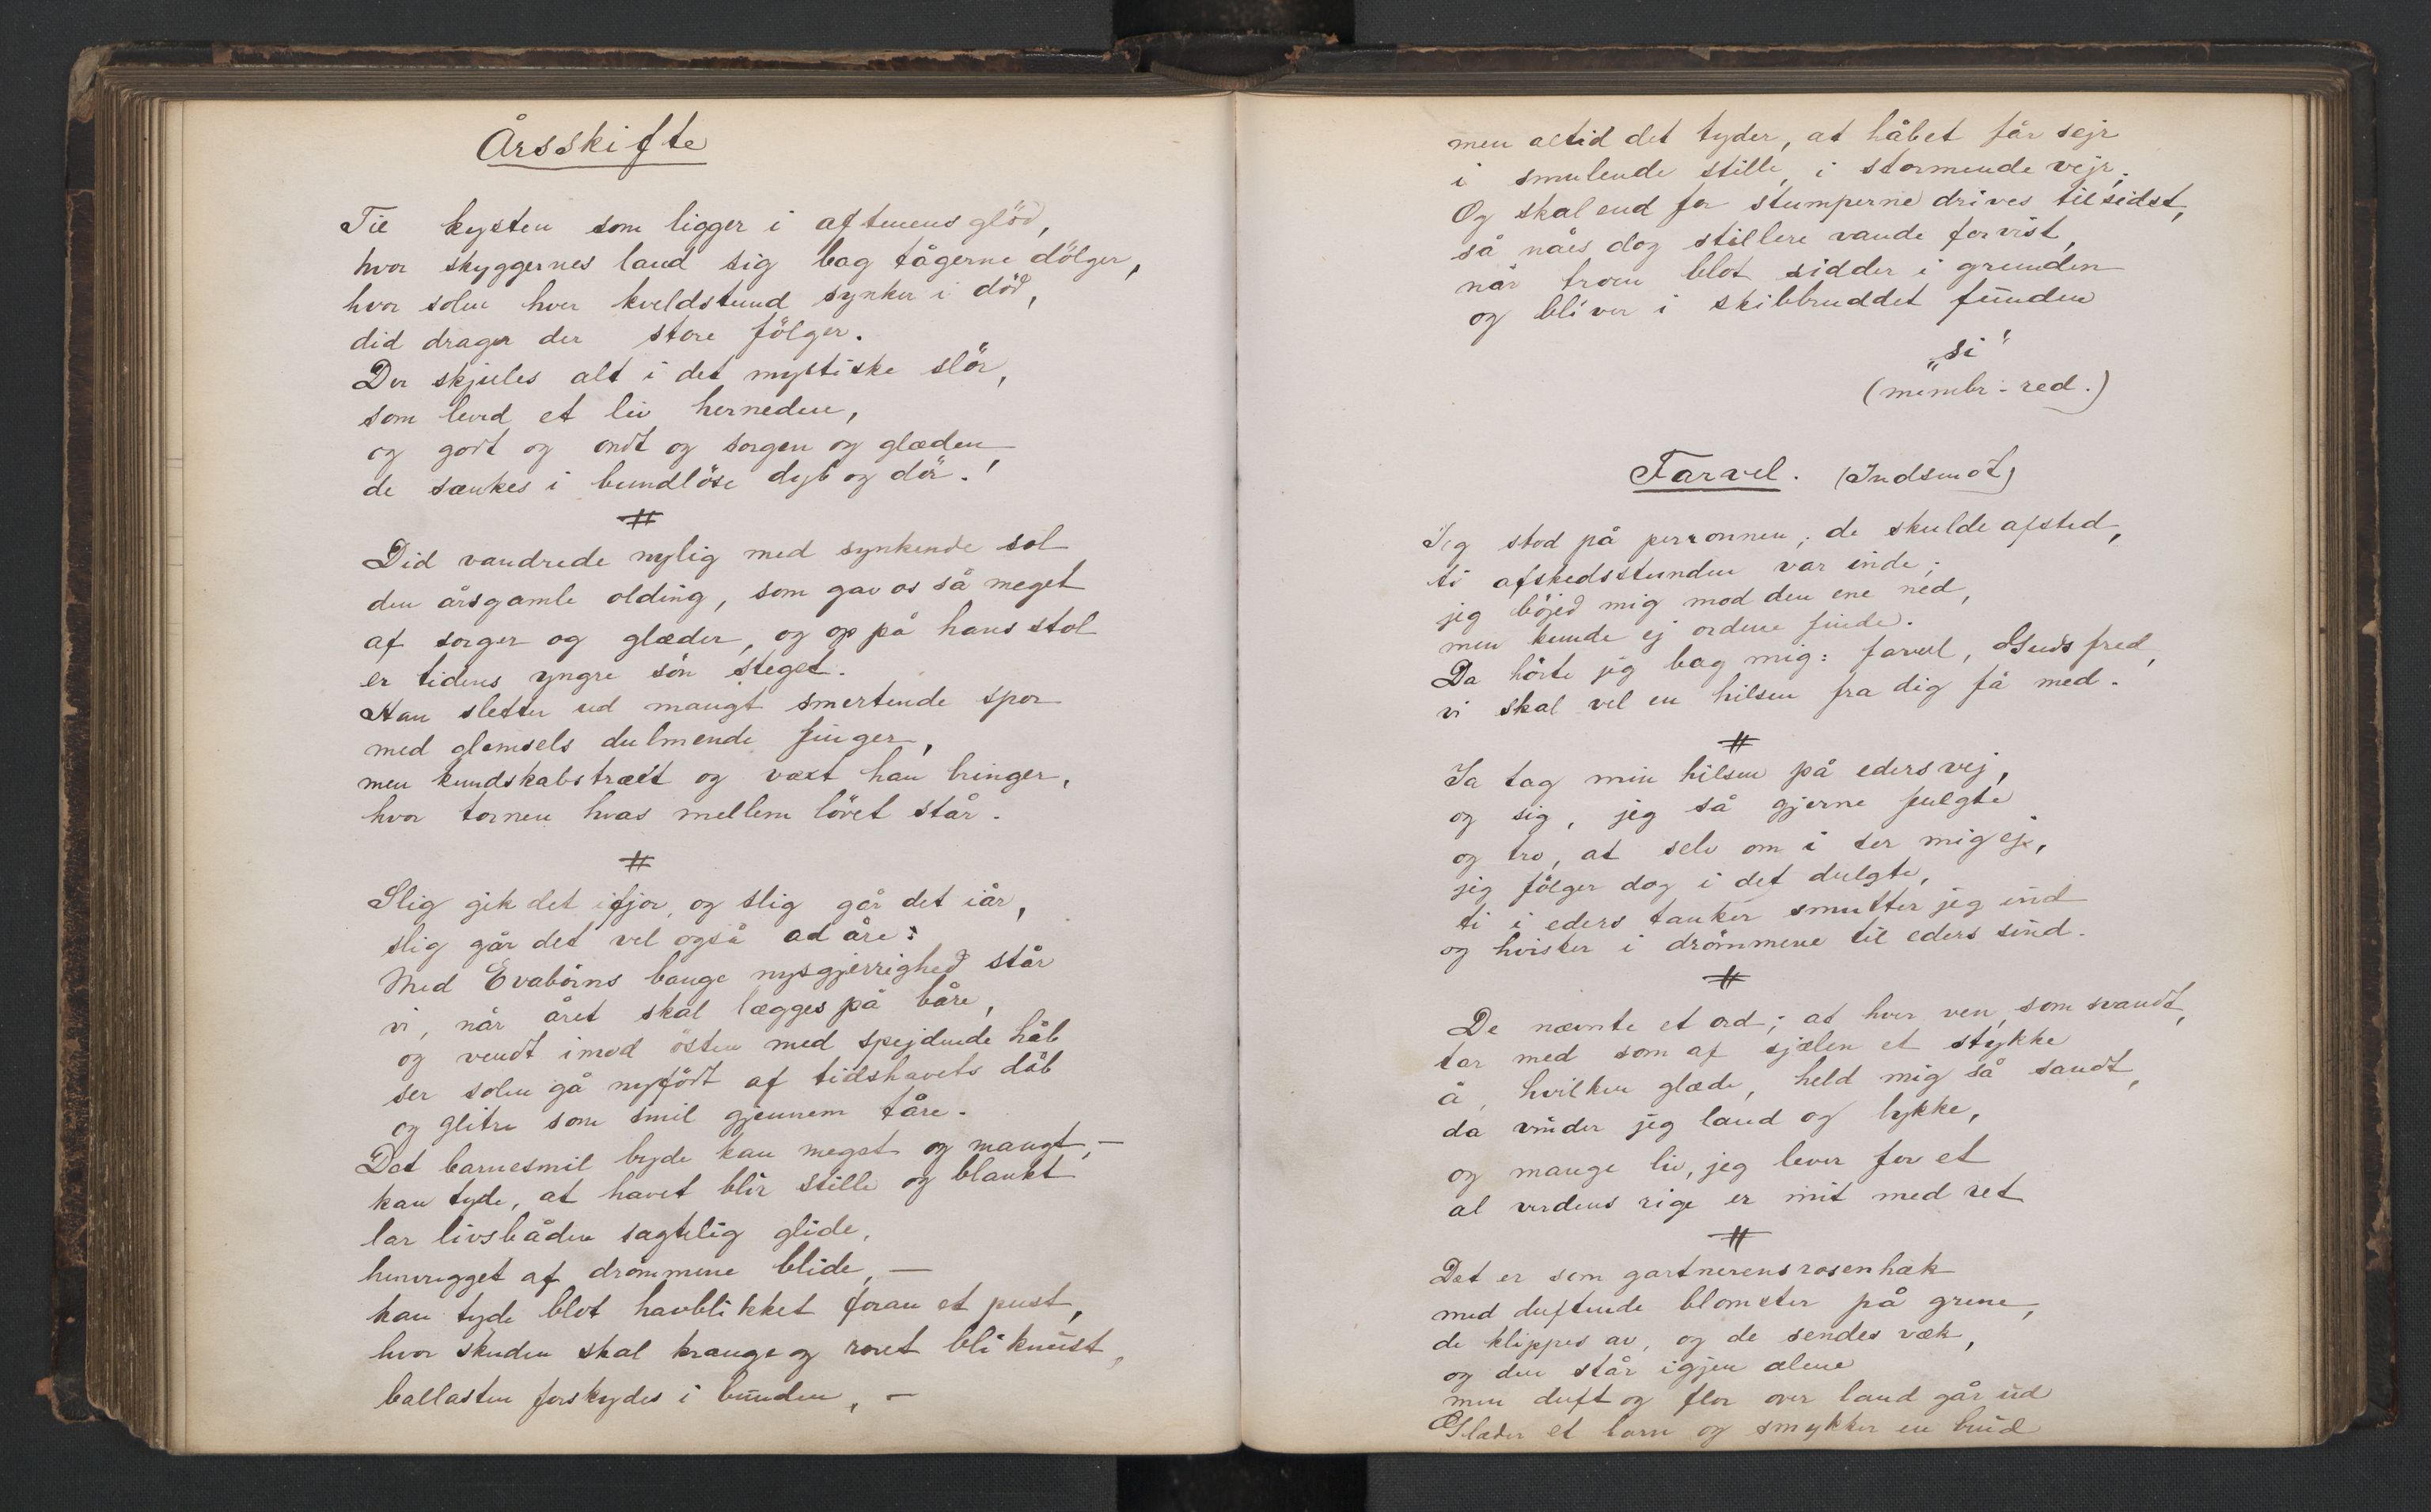 Årsskifte
Til kysten som ligger i aftenens glöd,
hvor skyggernes land sig bag tågerne dölger,
hvor solen hver kveldstund synker i död,
did drager der store fölger.
Der skjules alt i det mystiske slör,
som levd et liv hernedene,
og godt og ondt og sorgen og glæden
de sænkes i bundlöse dyb og dör.!
#
Did vandrede nylig med synkende sol
den årsgamle olding, som gav os så meget
af sorger og glæder, og op på hans stol
er tidens yngre sön steget.
Han sletter ud mangt smertende spor
med glemsels dulmende finger,
men kundskabstræet og vext han bringer,
hvor tornen hvas mellem lövet står.
#
Slig gik det ifjor, og slig går det iår,
slig går det vel også ad åre:
Med Evabörns bange nysgjerrighed står
vi, når året skal lægges på båre,
og vendt imod östen med spejdende håb
ser solen gå nyfödt af tidshavets dåb
og glitre som smil gjennem tåre.
Det barnesmil byde kan meget og mangt, -
kan tyde, at havet blir stille og blankt
lar livsbåden sagtelig glide,
henvugget af drömmene blide, -
kan tyde blot havblikket foran et pust,
hvor skuden skal krænge og roret bli knust,
ballasten forskydes i bunden, -
men altid det tyder, at håbet får sejr
i smulende stille, i stormende vejr;
Og skal end for stumperne drives tilsidst,
så nåes dog stillere vande forvist,
når troen blot sidder i grunden
og bliver i skibbruddet funden
„Si"
(membr-red.)
Farvel. (Indsendt)
Jeg stod på perronnen; de skulde afsted,
ti afskedsstunden var inde;
jeg böjed mig mod den ene ned,
men kunde ej ordene finde.
Da hörte jeg bag mig: farvel, Guds fred,
vi skal vel en hilsen fra dig få med.
#
Ja tag min hilsen på eders vej,
og sig, jeg så gjerne fulgte
og tro, at selv om i ser mig ej,
jeg fölger dog i det dulgte,
ti i eders tanker smutter jeg ind
og hvisker i drömmene til eders sind.
#
De nævnte et ord; at hver ven, som svandt,
tar med som af sjælen et stykke
å, hvilken glæde, held mig så sandt,
da vinder jeg land og lykke,
og mange liv, jeg lever for et
al verdens rige er mit med ret
#
Det er som gartnerens rosenhæk
med duftende blomster på grene,
de klippes av, og de sendes væk,
og den står igjen alene
men duft og flor over land går ud
Glæder et barn og smykker en brud